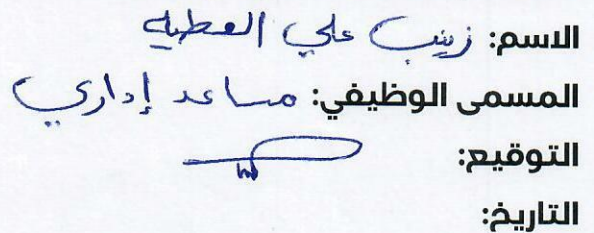 الاسم: زينب علي العطيه
المسمى الوظيفي: مساعد إداري
التوقيع:
التاريخ: